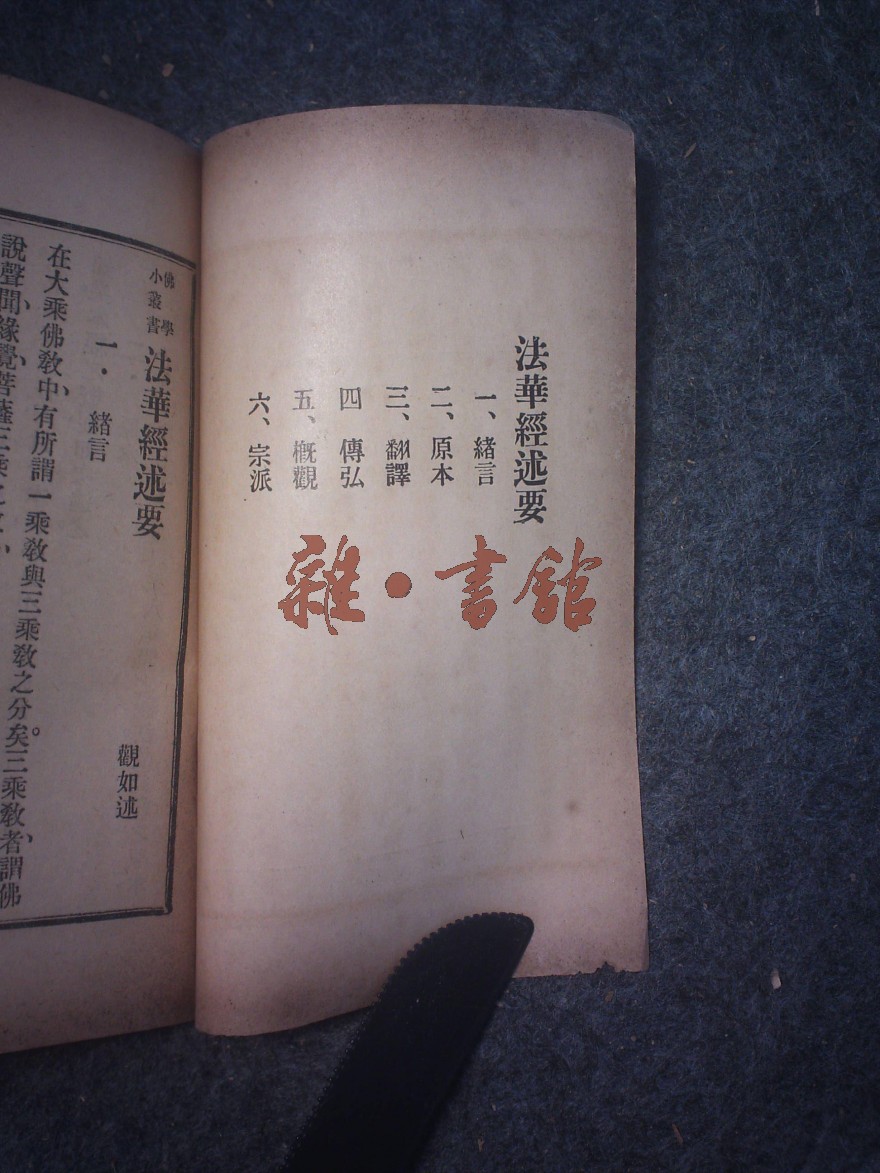 法華經述要
一、緒言
二、原本
三、翻譯
四 傳弘
五、概觀
六、宗派
雜·書館
佛學
小叢書
法華經述要
觀如述
一. 緒言
在大乘佛敎中、有所謂一乘敎與三乘敎之分矣。三乘敎者、謂佛
說聲聞、緣覺、菩薩三乘之